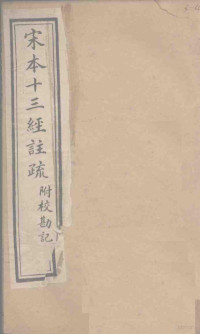 宋本十三經註疏
附校勘記